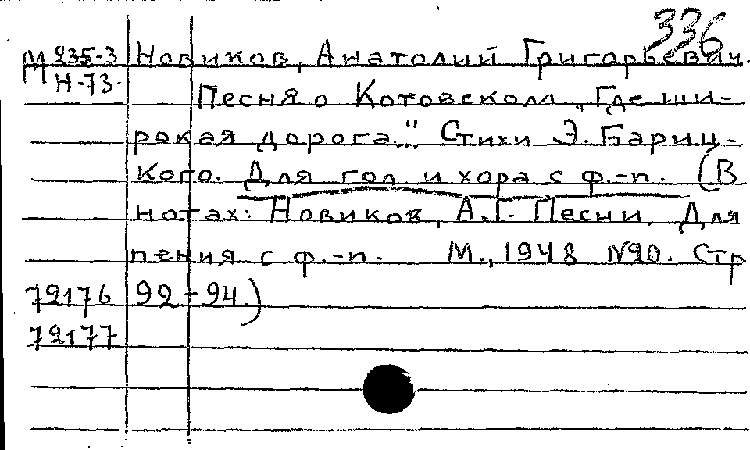 336
М 235-3 Новиков, Анатолий Григорьевич.
Н-73. Песня о Котовском „Где ши-
рокая дорога..." Стихи Э. Бариц-
кого. Для гол. и хора с ф.-п. (В
нотах: Новиков, А.Г. Песни. Для
пения с ф.-п. М., 1948 №20. Стр
72176 92-94.)
72177